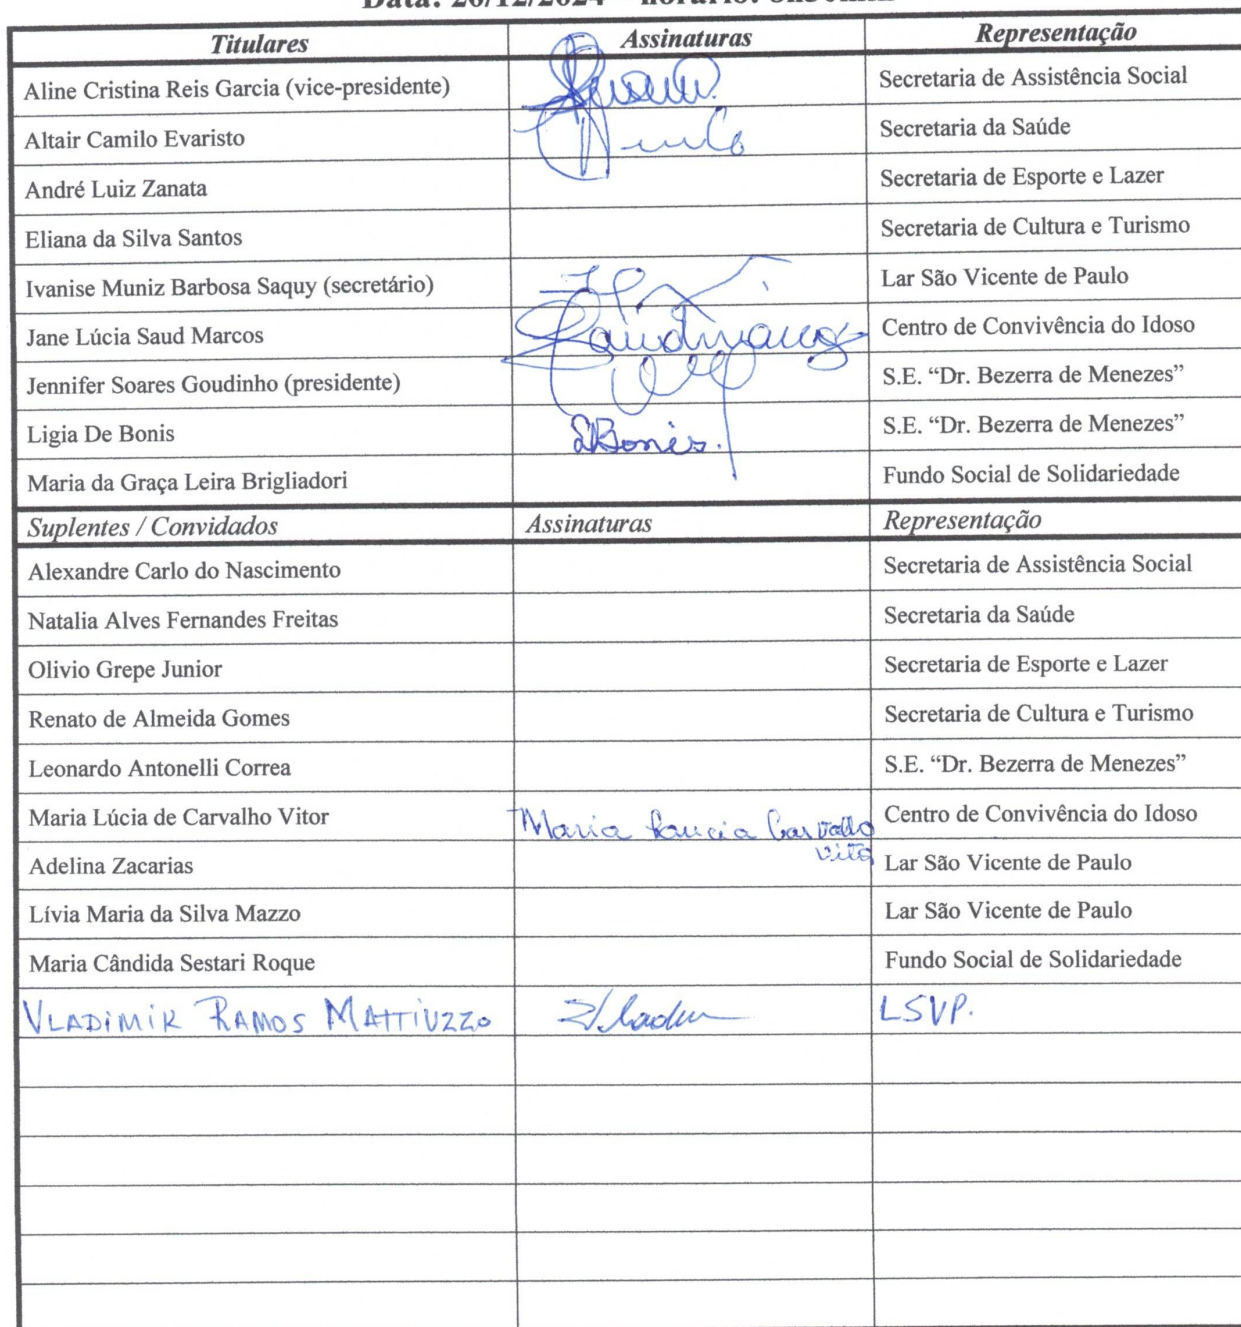 Data: 20/12/2024 – horário:
Titulares Assinaturas Representação
Aline Cristina Reis Garcia (vice-presidente) Secretaria de Assistência Social
Altair Camilo Evaristo Secretaria da Saúde
André Luiz Zanata Secretaria de Esporte e Lazer
Eliana da Silva Santos Secretaria de Cultura e Turismo
Ivanise Muniz Barbosa Saquy (secretário) Lar São Vicente de Paulo
Jane Lúcia Saud Marcos Centro de Convivência do Idoso
Jennifer Soares Goudinho (presidente) S.E. “Dr. Bezerra de Menezes”
Ligia De Bonis LBonis. S.E. “Dr. Bezerra de Menezes”
Maria da Graça Leira Brigliadori Fundo Social de Solidariedade
Suplentes / Convidados Assinaturas Representação
Alexandre Carlo do Nascimento Secretaria de Assistência Social
Natalia Alves Fernandes Freitas Secretaria da Saúde
Olivio Grepe Junior Secretaria de Esporte e Lazer
Renato de Almeida Gomes Secretaria de Cultura e Turismo
Leonardo Antonelli Correa S.E. “Dr. Bezerra de Menezes”
Maria Lúcia de Carvalho Vitor Maria Lucia Carvalho Centro de Convivência do Idoso
Vito
Adelina Zacarias Lar São Vicente de Paulo
Lívia Maria da Silva Mazzo Lar São Vicente de Paulo
Maria Cândida Sestari Roque Fundo Social de Solidariedade
VLADIMIR RAMOS MATTIUZZO LSVP.